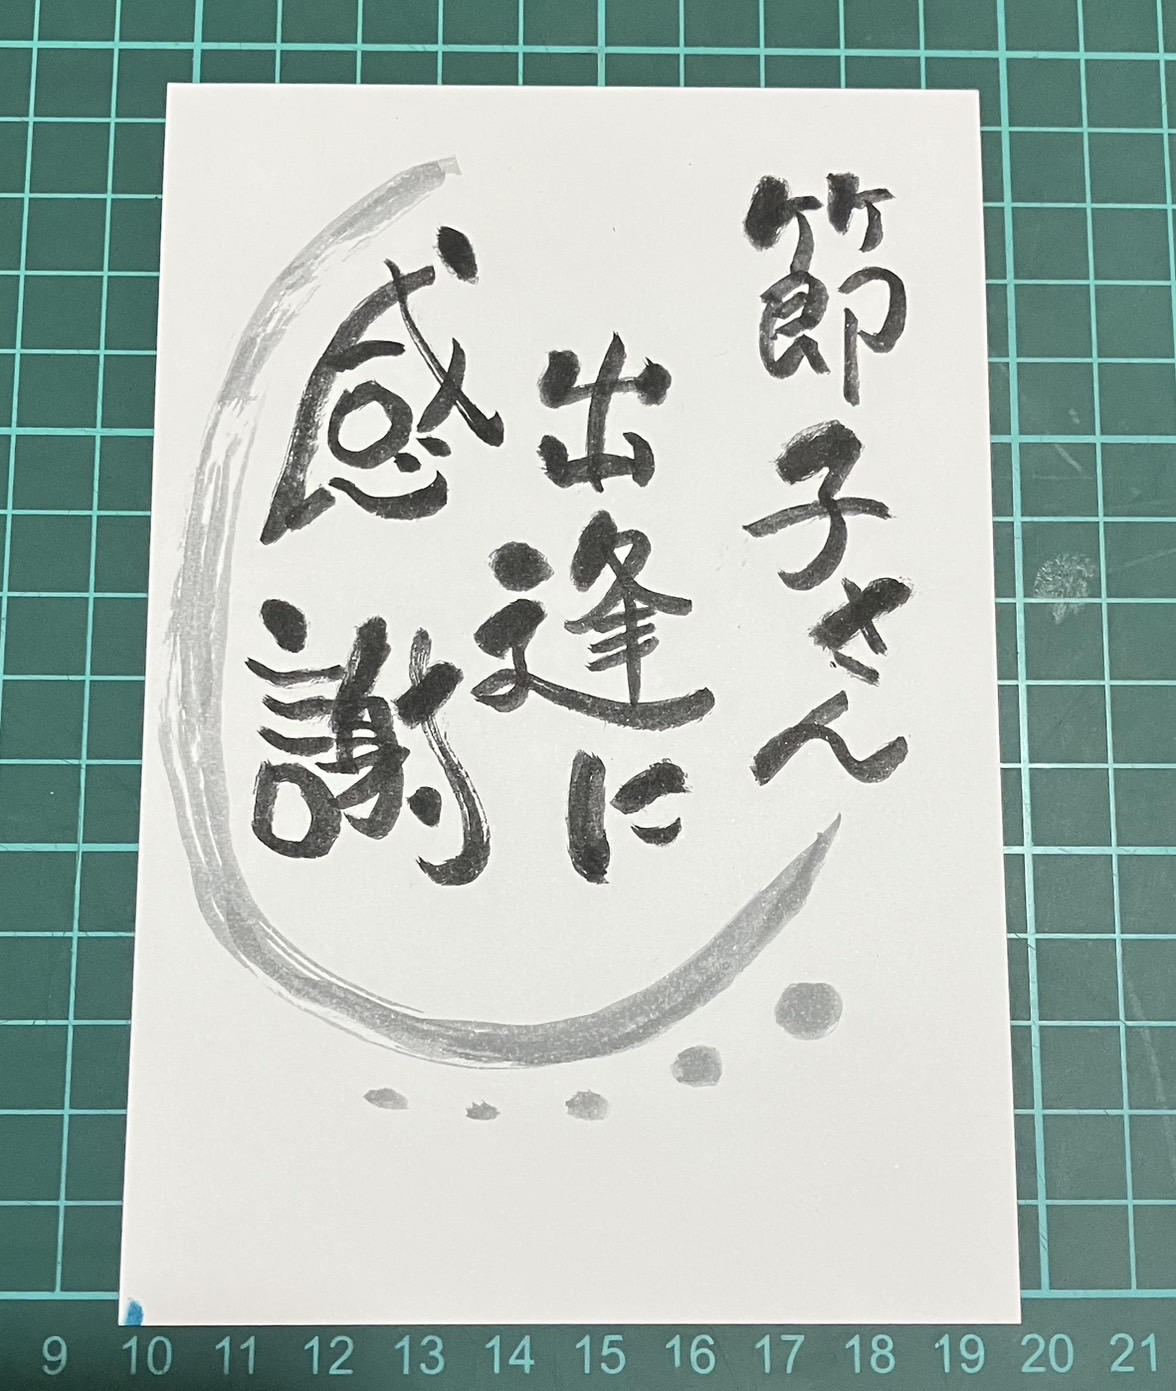 節子さん
出逢に
感謝
9 10 11 12 13 14 15 16 17 18 19 20 21